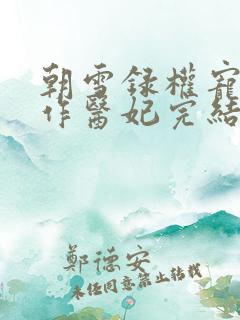 朝雪録權寵
作醫妃完結
鄭德安
未经同意禁止转载